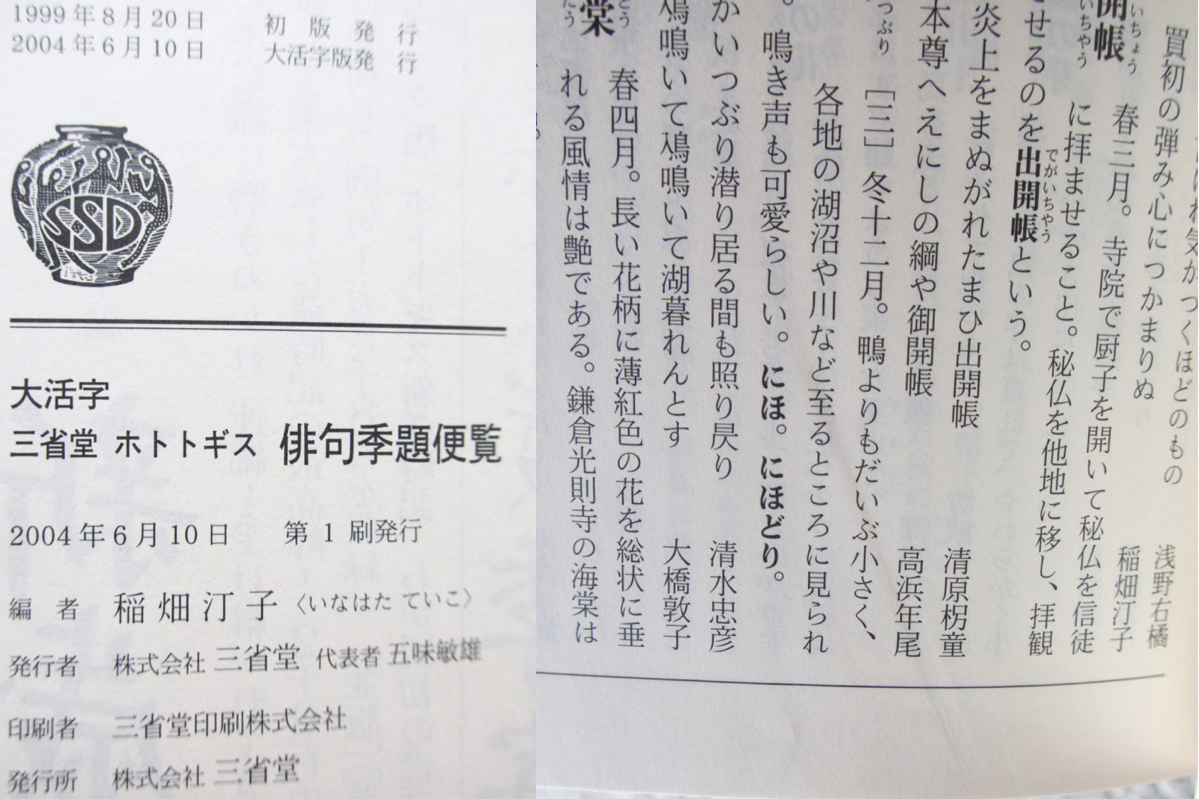 1999年8月20日 初版発行
2004年6月10日 大活字版発行
SSD
大活字
三省堂 ホトトギス 俳句季題便覧
2004年6月10日 第1刷発行
編者 稲畑汀子〈いなはた ていこ〉
発行者 株式会社 三省堂 代表者 五味敏雄
印刷者 三省堂印刷株式会社
発行所 株式会社 三省堂
気がつくほどのもの 稲畑汀子
買初の弾み心につかまりぬ 浅野右橘
開帳 いちょう いちやう 春三月。寺院で厨子を開いて秘仏を信徒
に拝ませること。秘仏を他地に移し、拝観
せるのを出開帳でがいちやうという。
炎上をまぬがれたまひ出開帳 清原枴童
本尊へえにしの綱や御開帳 高浜年尾
つぶり ［三］冬十二月。鴨よりもだいぶ小さく、
各地の湖沼や川など至るところに見られ
鳴き声も可愛らしい。にほ。にほどり。
かいつぶり潜り居る間も照り昃り 清水忠彦
鳰鳴いて鳰鳴いて湖暮れんとす 大橋敦子
棠 どう たう 春四月。長い花柄に薄紅色の花を総状に垂
れる風情は艶である。鎌倉光則寺の海棠は